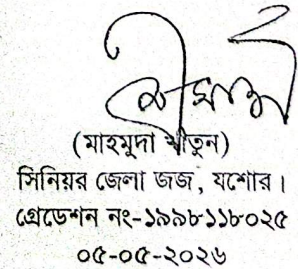 (মাহমুদা খাতুন)
সিনিয়র জেলা জজ, যশোর।
গ্রেডেশন নং-১৯৯৮১১৮০২৫
০৫-০৫-২০২৬